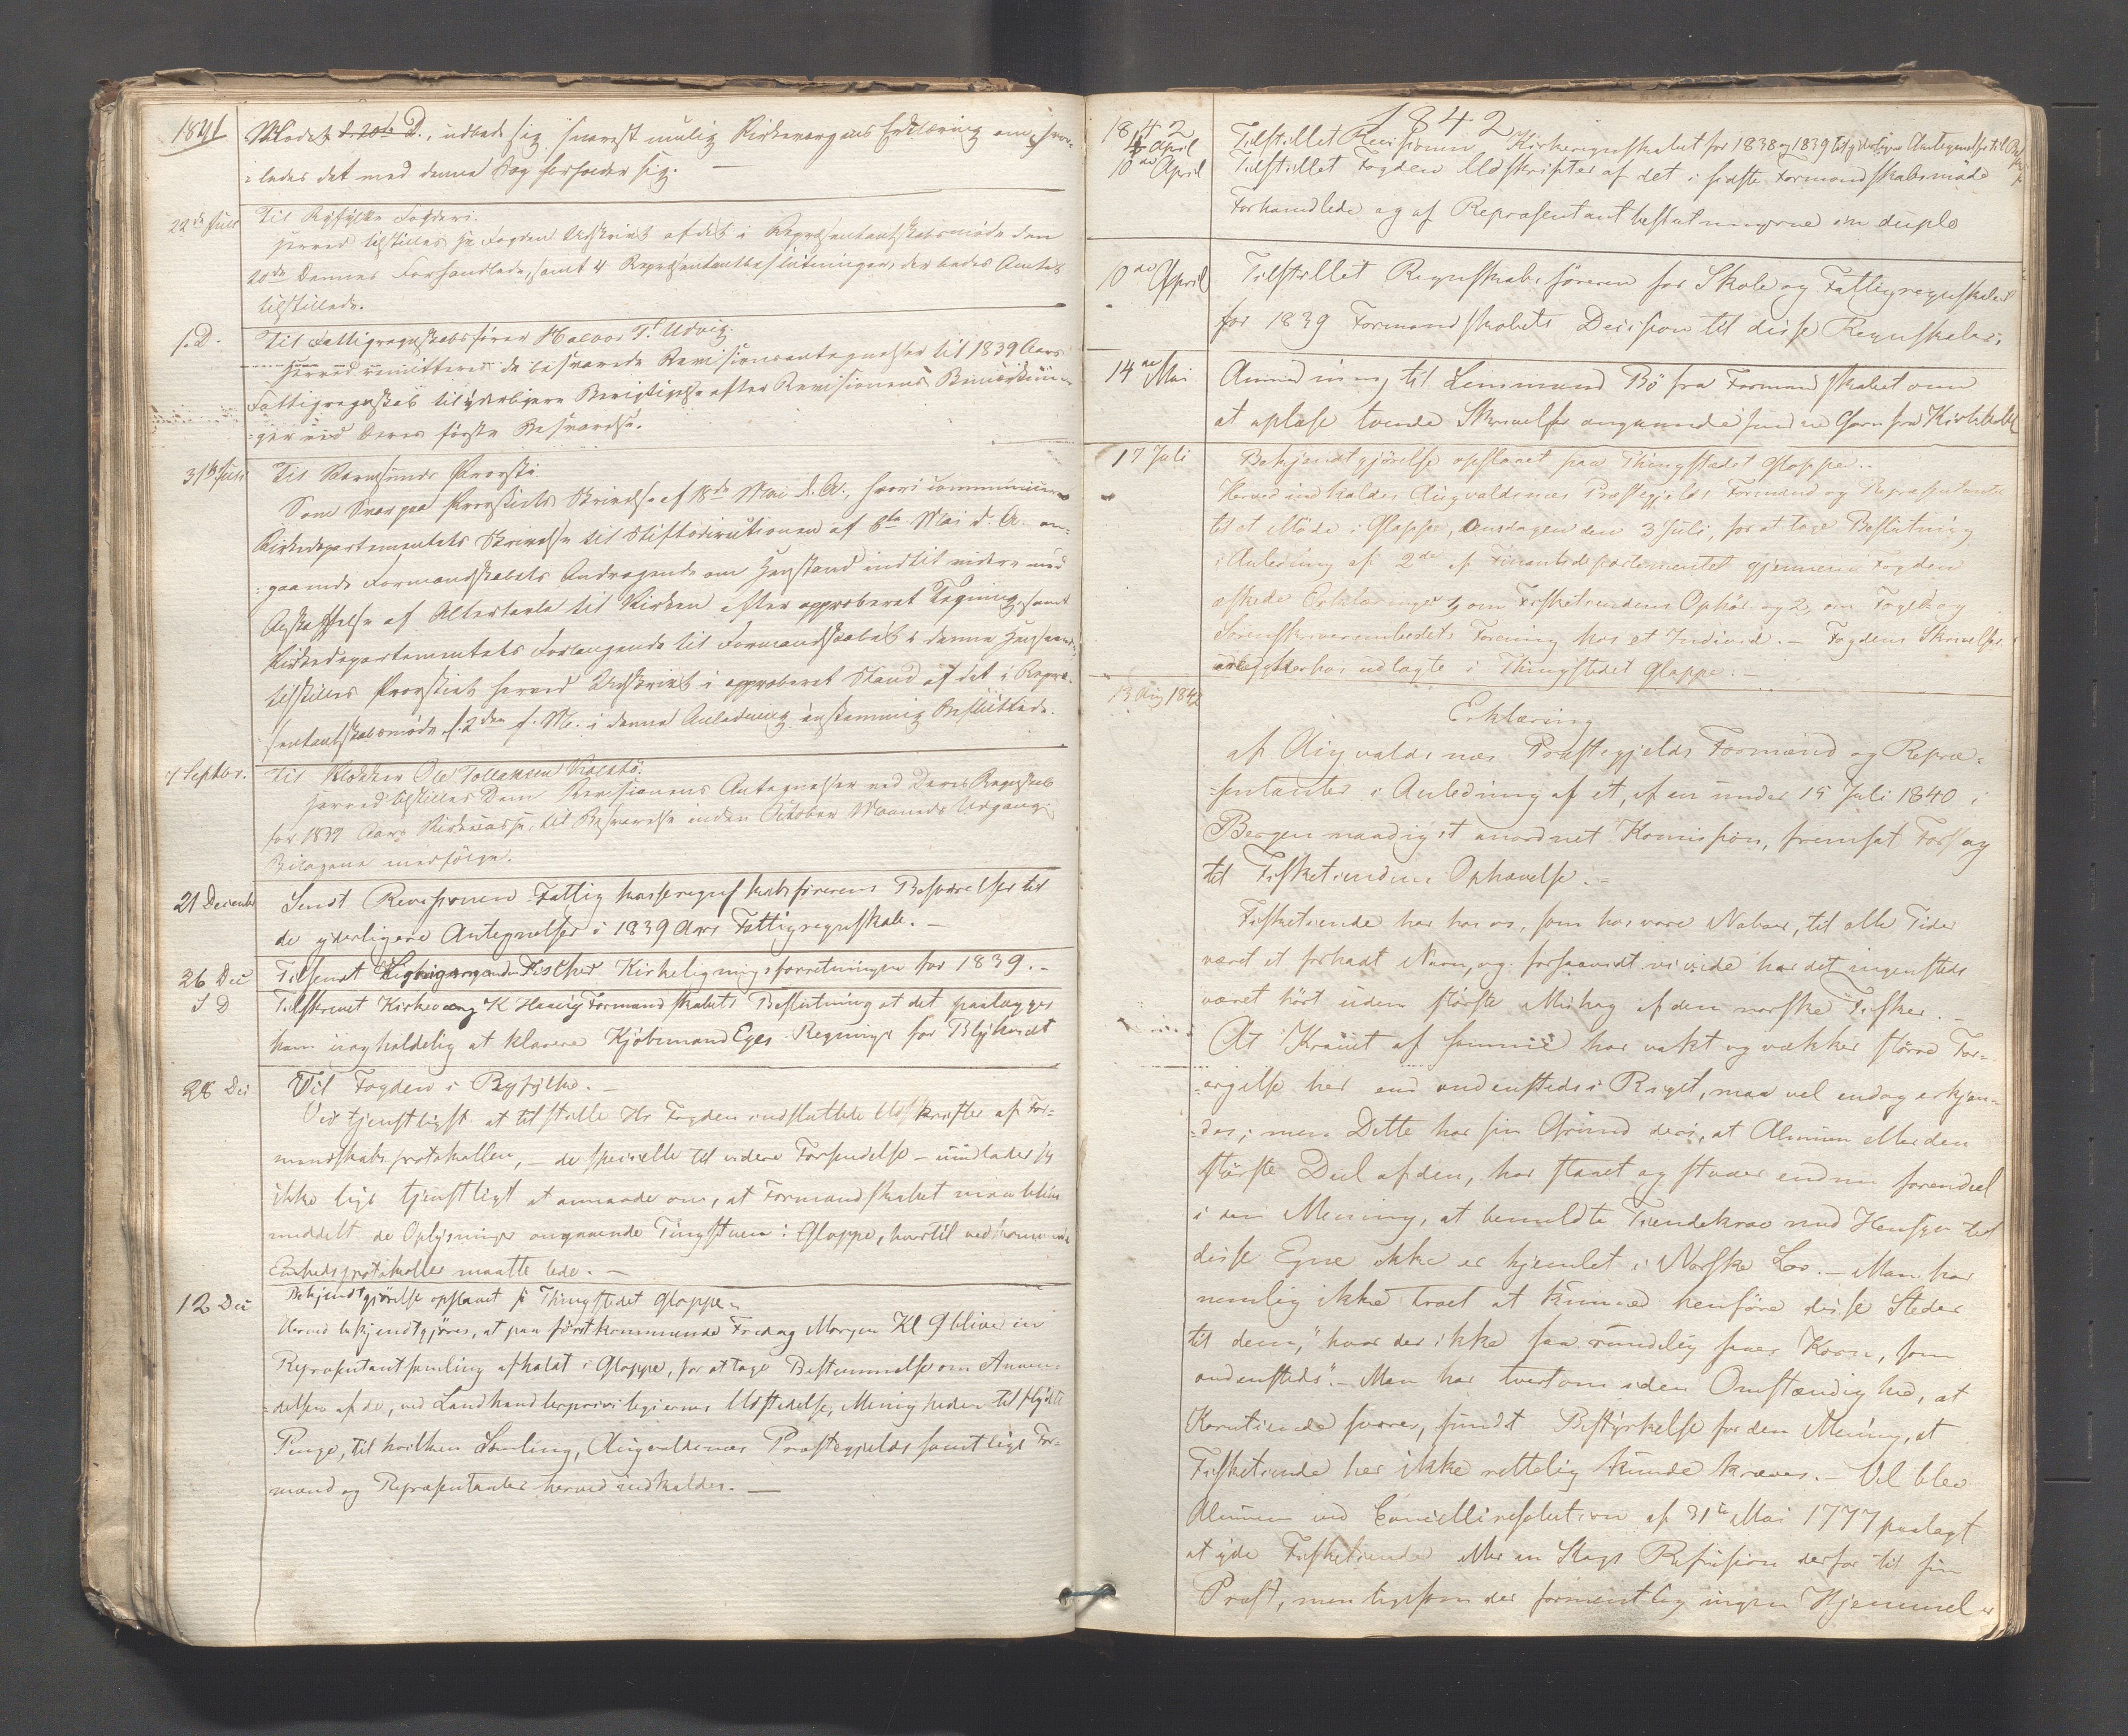 1841
Mødet d. 20de D., udbede sig snarest mulig Kirkeværgens Erklæring om, hvor-
ledes det med denne Sag forholder sig.
22de Juli
Til Ryfylke Fogderi.
Herved tilstilles Hr Fogden Udskrivt af det i Repræsentantskabsmøde den
20de Dennes Forhandlede, samt 4 Repræsentantbeslutninger, der bedes Amtet
tilstillede.
s. D.
Til Fattigregnskabsfører Halvor T. Udvig.
Herved remitteres de besvarede Revisionsantegnelser til 1839 Aars
Fattigregnskab til yderligere Berigtigelse efter Revisionens Bemærknin-
ger ved Deres første Besvarelse.
31te Juli
Til Karmsunds Provsti
Som Svar paa Provstiets Skrivelse af 18de Mai d. A., hvori communiceres
Kirkedepartementets Skrivelse til Stiftsdirectionen af 6te Mai d. A. an-
gaaende Formandskabets Andragende om Henstand indtil videre med
Anskaffelse af Altertavle til Kirken efter approberet Tegning, samt
Kirkedepartementets Forlangende til Formandskabet i denne Henseende
tilstilles Provstiet herved Udskrivt i approberet Stand af det i Repræ-
sentantskabsmøde d. 2den f. M. i denne Anledning eenstemmig Besluttede.
7 Septbr.
Til Klokker Ole Tollaksen
Herved tilstilles Dem Revisionens Antegnelser ved Deres Regnskab
for 1839 Aars Kirkecasse, til Besvarelse inden October Maaneds Udgang.
Bilagene medfølge.
21 December
Sendt Revisionen Fattigkasseregnskabsførerens Besvarelser til
de yderligere Antegnelser i 1839 Aars Fattigregnskab. —
26 Dec
Tilsendt Fischer Kirkeligningsforretningen for 1839. —
S D
Tilskrevet Kirkeværg K Hauig Formandskabets Beslutning at det paalægges
ham uopholdelig at klarere Kjøbmand Eges Regninge for Blyhvidt
28 Dec
Til Fogden i Ryfylke. —
Ved tjenstligst at tilstille Hr Fogden indsluttede Udskrifter af For-
mandskabsprotokollen, — de specielle til videre Forsendelse — undlader jeg
ikke lige tjenstligst at anmode om, at Formandskabet maa blive
meddelt de Oplysninger angaaende Tingstuen i Gloppe, hvortil vedkommende
Embedsprotokoller maatte lede. —
12 Dec
Bekjendtgjørelse opslaaet på Thingstedet Gloppe.
Herved bekjendtgjøres, at paa førstkommende Fredag Morgen Kl 9 bliver en
Repræsentantsamling afholdt i Gloppe, for at tage Bestemmelse om Anven-
delsen af de, ved Landhandlerprivilegiernes Udstedelse, Menigheden tilflydte
Penge, til hvilken Samling, Augvaldsnæs Præstegjelds samtlige For-
mænd og Repræsentanter herved indkaldes. —
1842
1842
4 April
Tilstillet Revisionen Kirkeregnskabet for 1838 og 1839 Antegnelser til
10de April
Tilstillet Fogden Udskrifter af det i sidste Formandskabsmøde
Forhandlede og af Repræsentantbeslutningerne in duplo
10de April
Tilstillet Regnskabsføreren for Skole og Fattigregnskabet
for 1839 Formandskabets Decision til disse Regnskaber.
14de Mai
Anmodning til Lensmand Bö fra Formandskabet om
at oplæse tvende Skrivelser angaaende
17 Juli
Bekjendtgjörelse opslaaet paa Thingstedet Gloppe.
Herved indkaldes Augvaldsnæs Præstegjelds Formænd og Repræsentanter
til et Møde i Gloppe, Onsdagen den 3 Juli, for at tage Beslutning
i Anledning af 2de af Finantsdepartementet gjennem Fogden
æskede Erklæringer 1, om Fisketiendens Ophör og 2, om Foged og
Sorenskriverembedets Forening hos et Individ. — Fogdens Skrivelser
udlagte i Thingstedet Gloppe. —
13 Aug 1842
Erklæring
af Augvaldsnæs Præstegjelds Formænd og Repræ-
sentanter i Anledning af et, af en under 15 Juli 1840 i
Bergen naadigst anordnet Komission, fremsat Forslag
til Fisketiendens Ophævelse. —
Fisketiende har hos os, som hos vore Naboer, til alle Tider
været et forhadt Navn, og forsaavidt vi vide har det ingensteds
været hört uden störste Mishag af den norske Fisker. —
At Kravet af samme har vakt og vækker större For-
argelse her end andensteds i Riget, maa vel endog erkjen-
des; men Dette har sin Grund deri, at Almuen eller den
störste Deel af den, har staaet og staaer endnu forendeel
i den Mening, at bemeldte Tiendekrav med Hensyn til
disse Egne ikke er hjemlet i Norske Lov. — Man har
nemlig ikke troet at kunne henföre disse Steder
til dem, "hvor der ikke saa rundelig saaes Korn, som
andensteds". — Man har tvertom i den Omstændighed, at
Korntiende svares, fundt Bestyrkelse for den Mening, at
Fisketiende her ikke rettelig kunde kræves. — Vel blev
Almuen ved Cancelliresolution af 31te Mai 1777 paalagt
at yde Fisketiende eller en Slags Refusion derfor til sin
Præst, men ligesom der formentlig ingen Hjemmel er